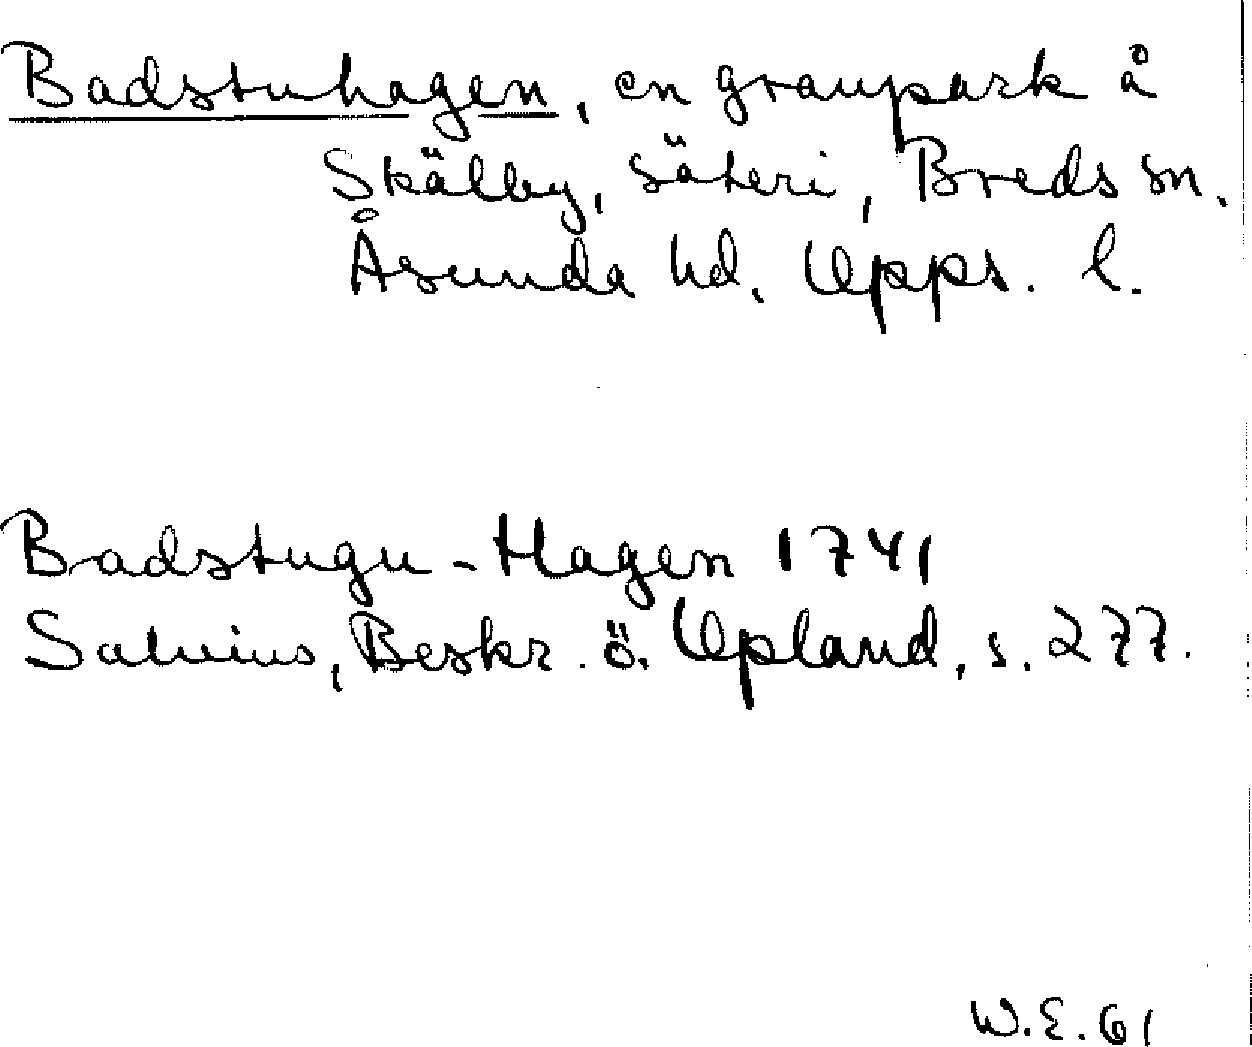 Badstuhagen, en granpark å
Skälby, säteri, Breds sn.
Åsunda hd. Upps. l.
Badstugu-Hagen 1741
Salvius, Beskr. ö. Upland, s. 277.
W.E. 61